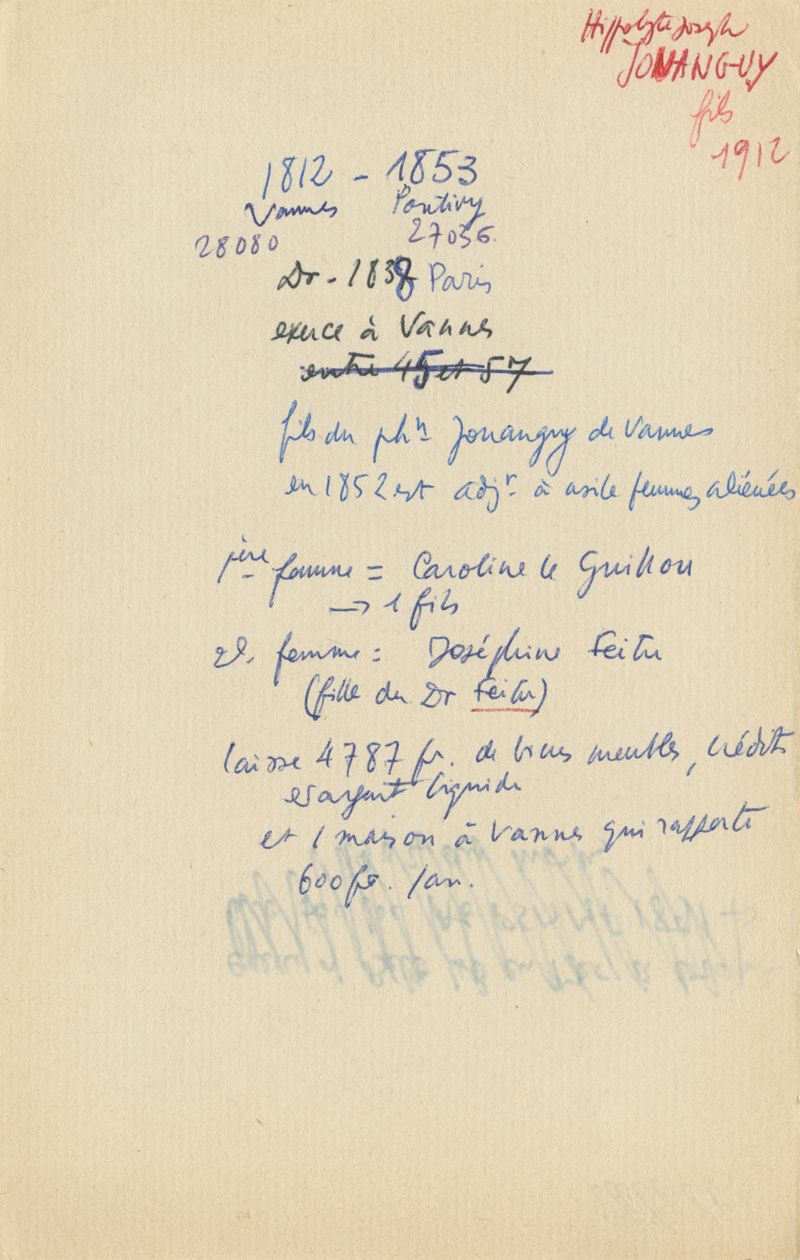 Hippolyte Joseph
JOUANGUY
fils
1912
1812 - 1853
Vannes Pontivy
28080 27036.
Dr - 1838 Paris
exerce à Vannes
entre 45 et 57
fils du phn Jouanguy de Vannes
en 1852 est adjt à asile femmes aliénées
1ère femme = Caroline le Guillou
→ 1 fils
2e. femme : Joséphine Feitu
(fille du Dr Feitu)
laisse 4787 fr. de biens meubles, crédits
et argent liquide
et 1 maison à Vannes qui rapporte
600 fr. /an.